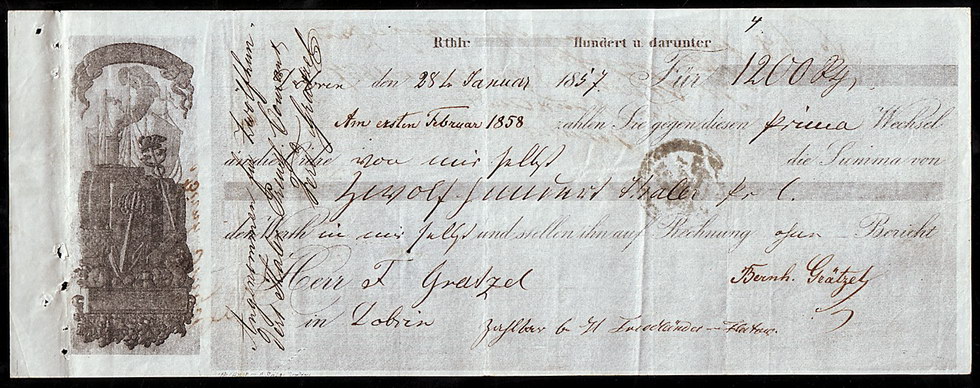 4.
Rthlr Hundert u. darunter
den 28t Januar 1857 Für 1200
Am ersten Februar 1858 zahlen Sie gegen diesen prima Wechsel
an die Ordre von mir selbst die Summa von
Zwölf hundert Thaler pr C.
den Werth in mir selbst und stellen ihn auf Rechnung ohne Bericht
Herr F Graetzel
Bernh. Grätzel
in Dobrin zahlbar b H Friedländer Flatow
Angenommen für Zwölfhun
dert Thaler Preuß Courant
Graetzel